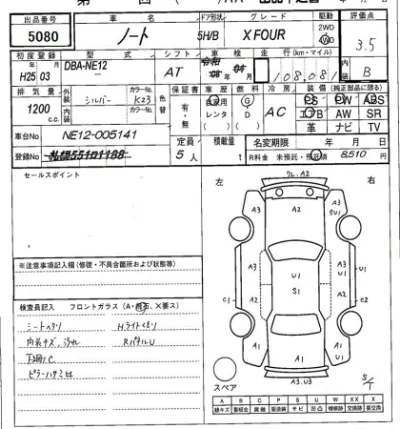 出品番号 車名 ドア形状 グレード 駆動 評価点
5080 ノート 5H/B X FOUR 2WD 4WD 3.5
初度登録 型式 シフト 車検 走行(km・マイル) 内装
H25 03 DBA-NE12 AT 108,081 B
排気量 外装 カラーNo. 色替 保証書 車歴 燃料 冷房 装備(純正品部に限る)
1200 cc シルバー K23 有・無 自家用 レンタ ( ) G D ( ) AC PS PW ABS
エアB AW SR
革 ナビ TV
車台No NE12-005141 定員 積載量 名変期限 年 月 日
登録No 札幌551ひ1188 5人 t R料金 未預託・預託済 8,510 円
セールスポイント
左 右
フレ.A2
A3 A2 A3 SU1
A3 U1 A3 U1
C2 S1 C1
A2 A2
A1 A1 U1
A3.U3
スペア
※注意事項記入欄(修復・不具合箇所および状態等)
検査員記入 フロントガラス(A・飛石、X要ス)
シートヘタリ Hライトくもり
内装キズ、汚れ RパネルU
下廻りC
A B C P S U W X XX
線キズ 要板金 腐蝕 要塗装 サビ 凹凸 補修跡 要交換 交換跡